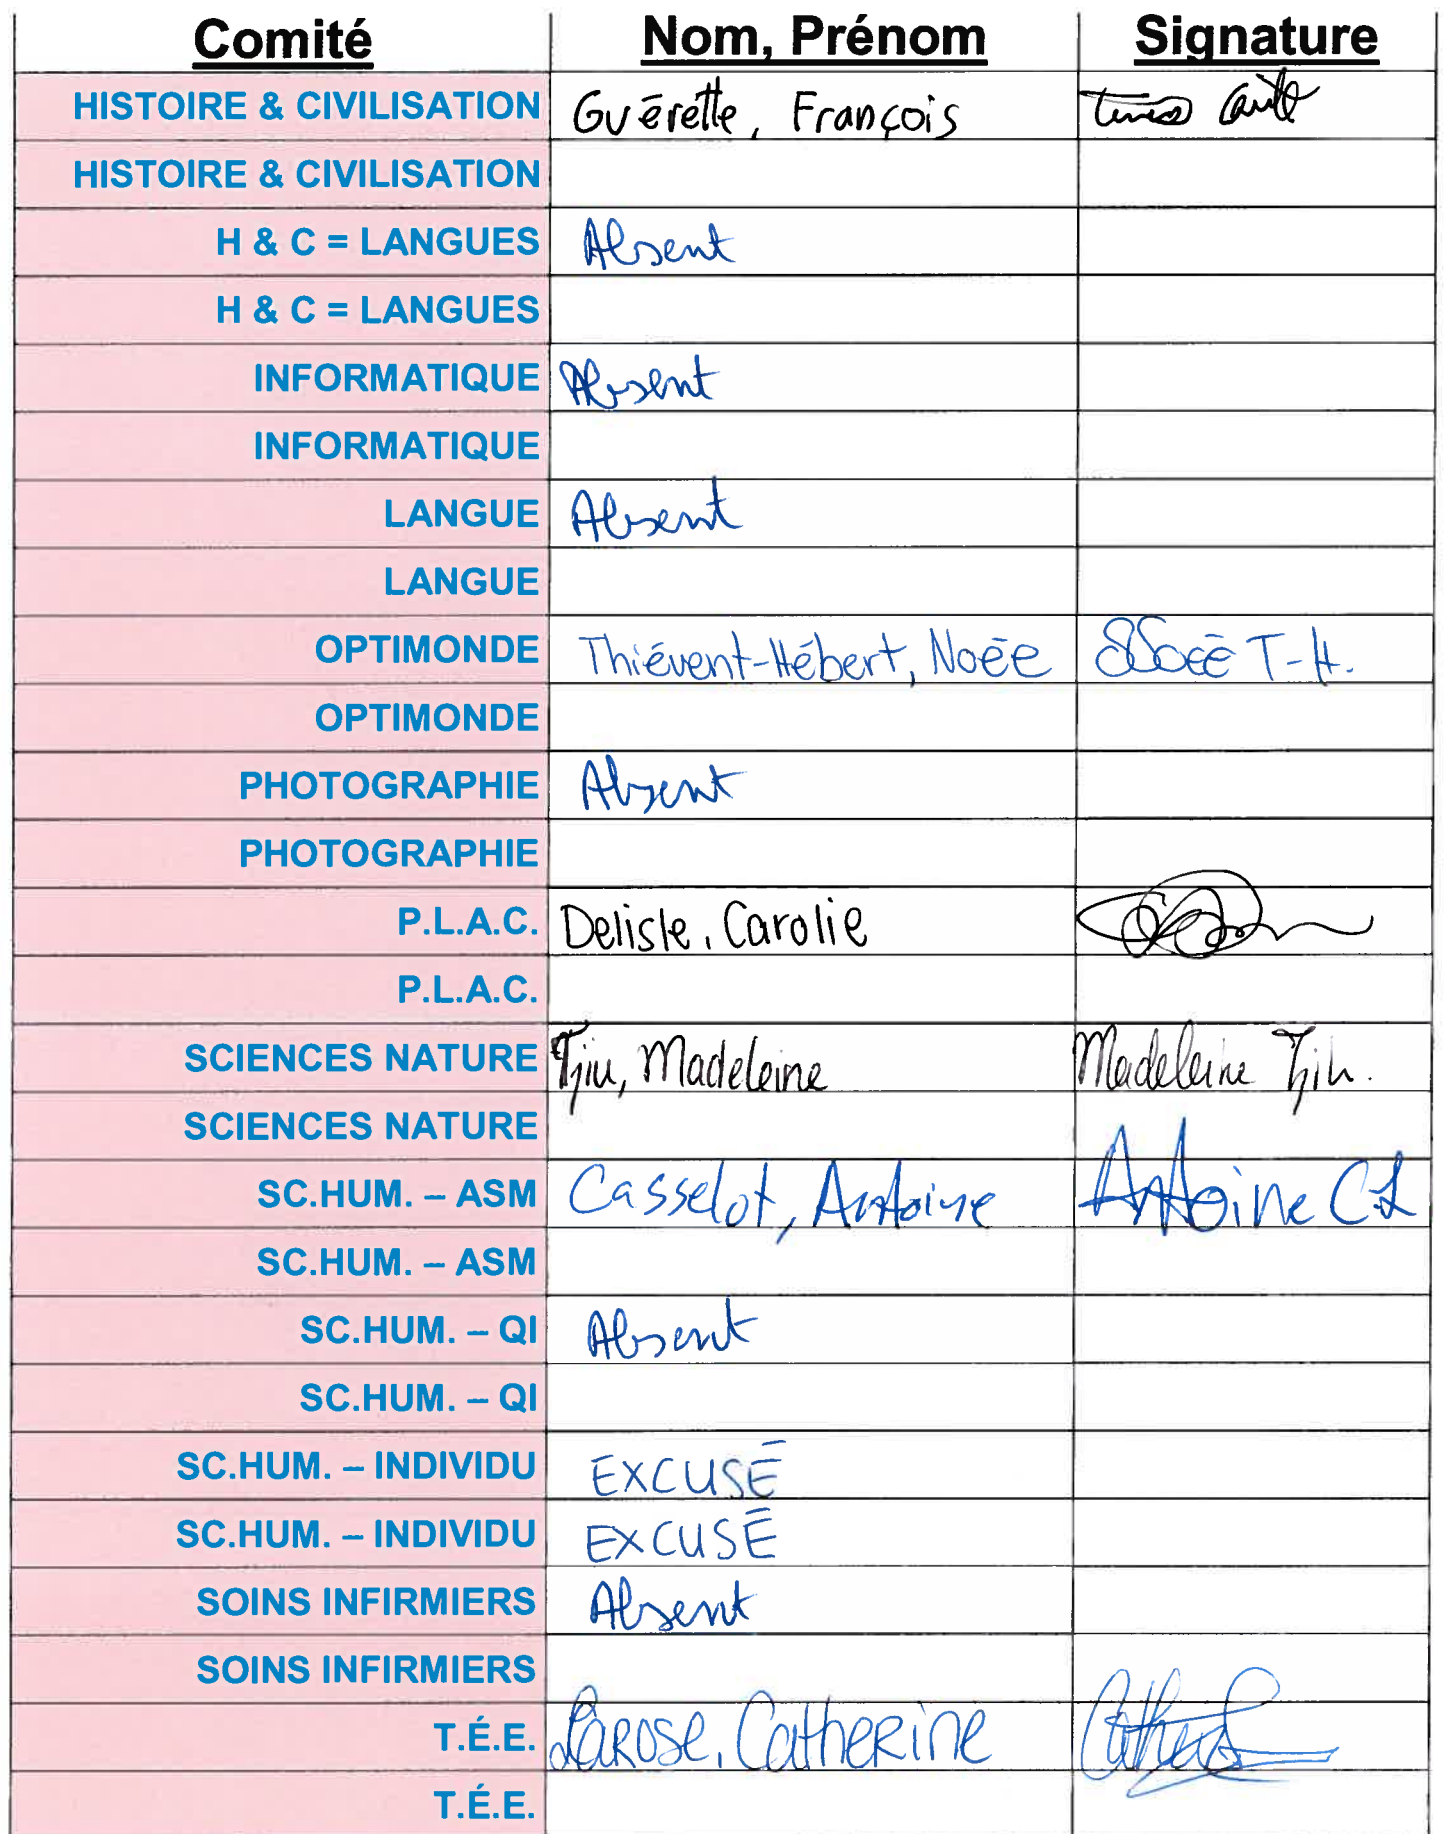 Comité Nom, Prénom Signature
HISTOIRE & CIVILISATION Guérette, François
HISTOIRE & CIVILISATION
H & C = LANGUES Absent
H & C = LANGUES
INFORMATIQUE Absent
INFORMATIQUE
LANGUE Absent
LANGUE
OPTIMONDE Thiévent-Hébert, Noée Noée T-H.
OPTIMONDE
PHOTOGRAPHIE Absent
PHOTOGRAPHIE
P.L.A.C. Delisle, Carolie
P.L.A.C.
SCIENCES NATURE Tjiu, Madeleine Madeleine Tjiu.
SCIENCES NATURE
SC.HUM. – ASM Casselot, Antoine Antoine CL
SC.HUM. – ASM
SC.HUM. – QI Absent
SC.HUM. – QI
SC.HUM. – INDIVIDU EXCUSÉ
SC.HUM. – INDIVIDU EXCUSÉ
SOINS INFIRMIERS Absent
SOINS INFIRMIERS
T.É.E. Larose, Catherine
T.É.E.